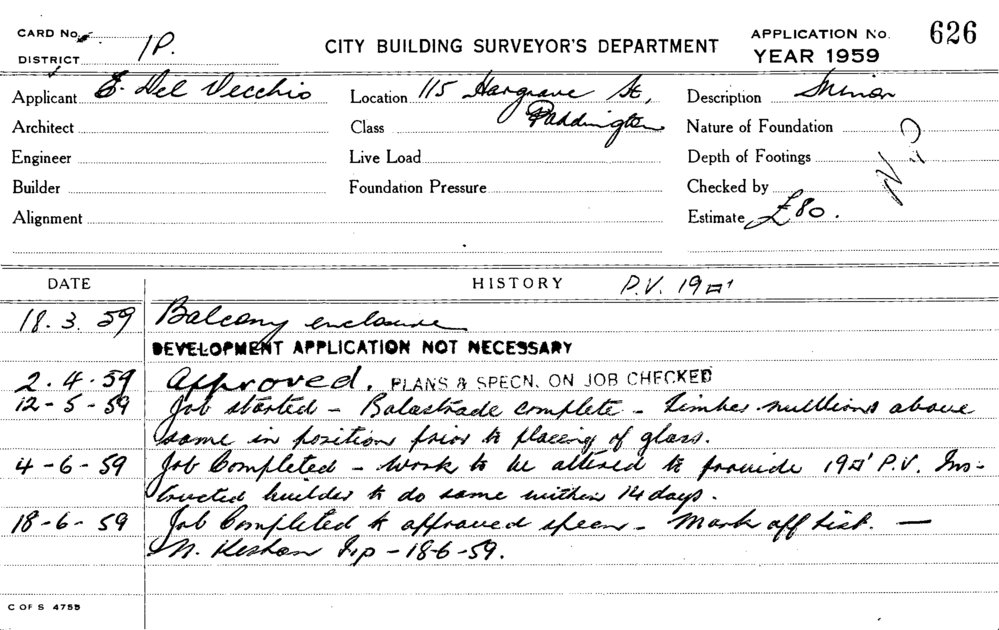 CARD No.
DISTRICT 1P.
CITY BUILDING SURVEYOR'S DEPARTMENT
APPLICATION No. 626
YEAR 1959
Applicant E. Del Vecchio
Location 115 Hargrave St,
Paddington
Description Minor
Architect
Class
Nature of Foundation
Engineer
Live Load
Depth of Footings
Builder
Foundation Pressure
Checked by
Alignment
Estimate £80.
DATE HISTORY P.V. 19□'
18.3.59 Balcony enclosure
DEVELOPMENT APPLICATION NOT NECESSARY
2.4.59 Approved. PLANS & SPECN. ON JOB CHECKED
12-5-59 Job started - Balastrade complete - timber mullions above
same in position prior to placing of glass.
4-6-59 Job Completed - work to be altered to provide 19□' P.V. Ins-
tructed builder to do same within 14 days.
18-6-59 Job Completed to approved specn - Mark off list. —
18-6-59.
C OF S 4755